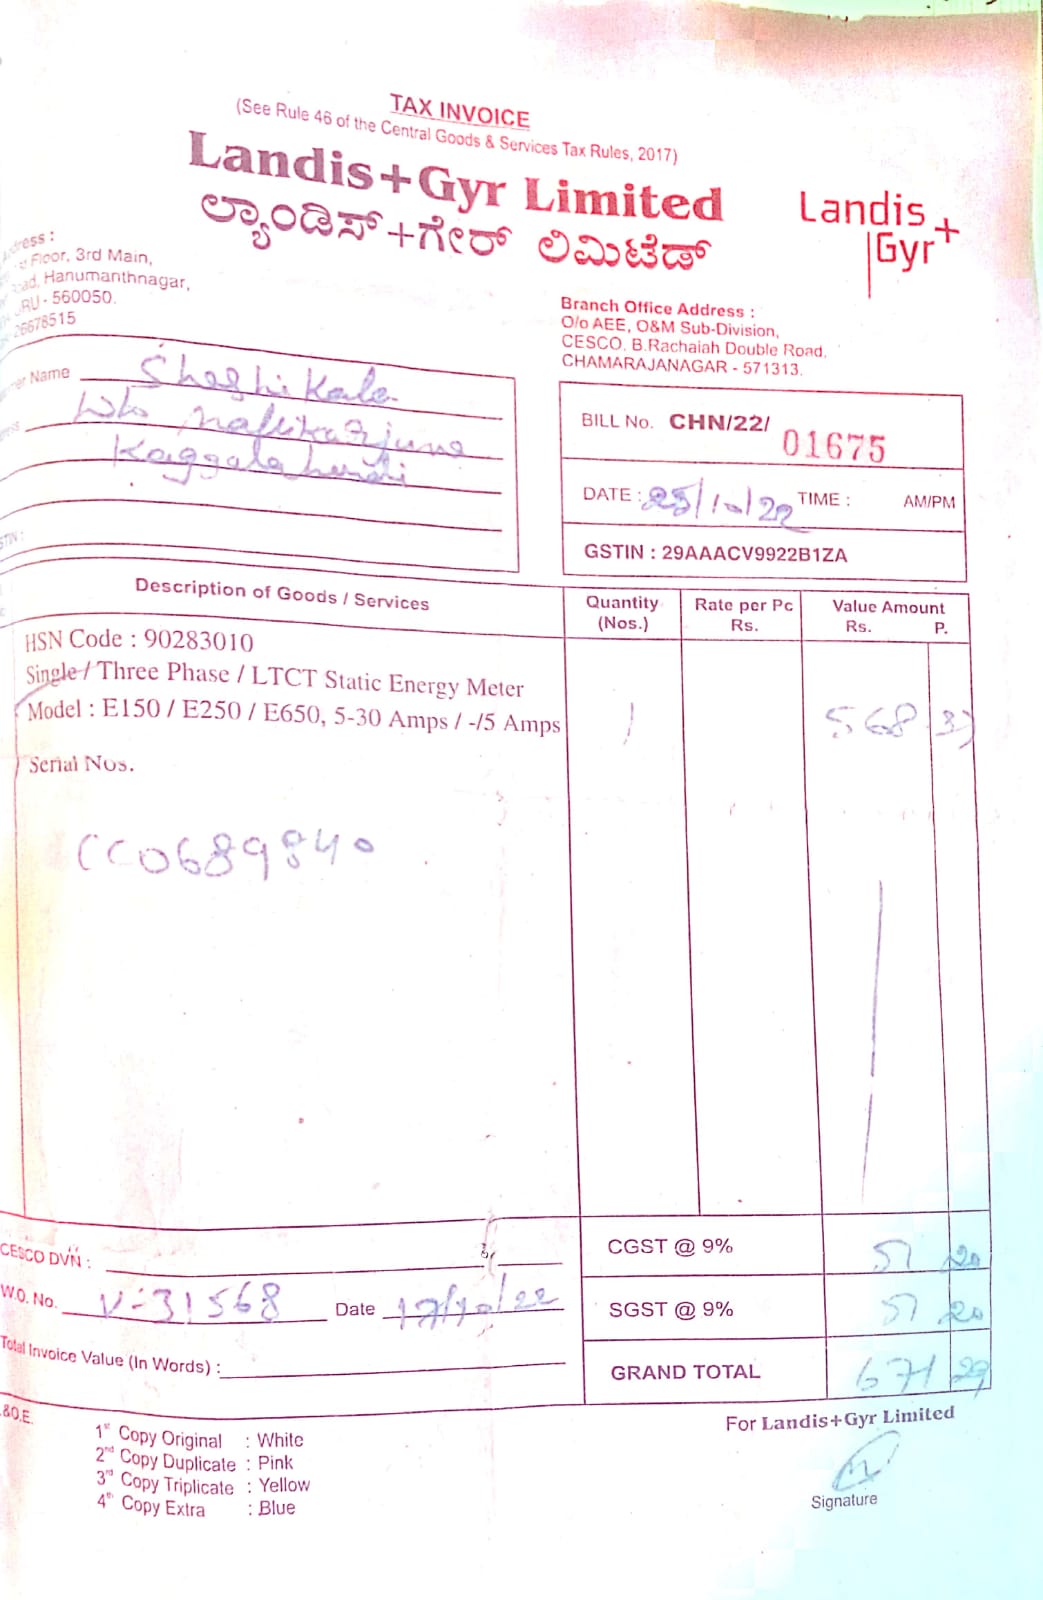 TAX INVOICE
(See Rule 46 of the Central Goods & Services Tax Rules, 2017)
Landis+Gyr Limited
ಲ್ಯಾಂಡಿಸ್+ಗೇರ್ ಲಿಮಿಟೆಡ್
Landis+
Gyr
Floor, 3rd Main,
Hanumanthnagar,
560050.
26678515
Branch Office Address :
O/o AEE, O&M Sub-Division,
CESCO, B.Rachaiah Double Road,
CHAMARAJANAGAR - 571313.
Name Shashi Kala
W/o Mallikarjuna
Kaggalahundi
BILL No. CHN/22/ 01675
DATE : 25/10/22 TIME : AM/PM
GSTIN : 29AAACV9922B1ZA
Description of Goods / Services Quantity (Nos.) Rate per Pc Rs. Value Amount Rs. P.
HSN Code : 90283010
Single / Three Phase / LTCT Static Energy Meter
Model : E150 / E250 / E650, 5-30 Amps / -/5 Amps 1 568
Serial Nos.
CC0689840
CESCO DVN : CGST @ 9% 51 20
W.O. No. V-31568 Date 17/10/22 SGST @ 9% 51 20
Total Invoice Value (In Words) : GRAND TOTAL 671 29
&O.E.
1st Copy Original : White
2nd Copy Duplicate : Pink
3rd Copy Triplicate : Yellow
4th Copy Extra : Blue
For Landis+Gyr Limited
Signature